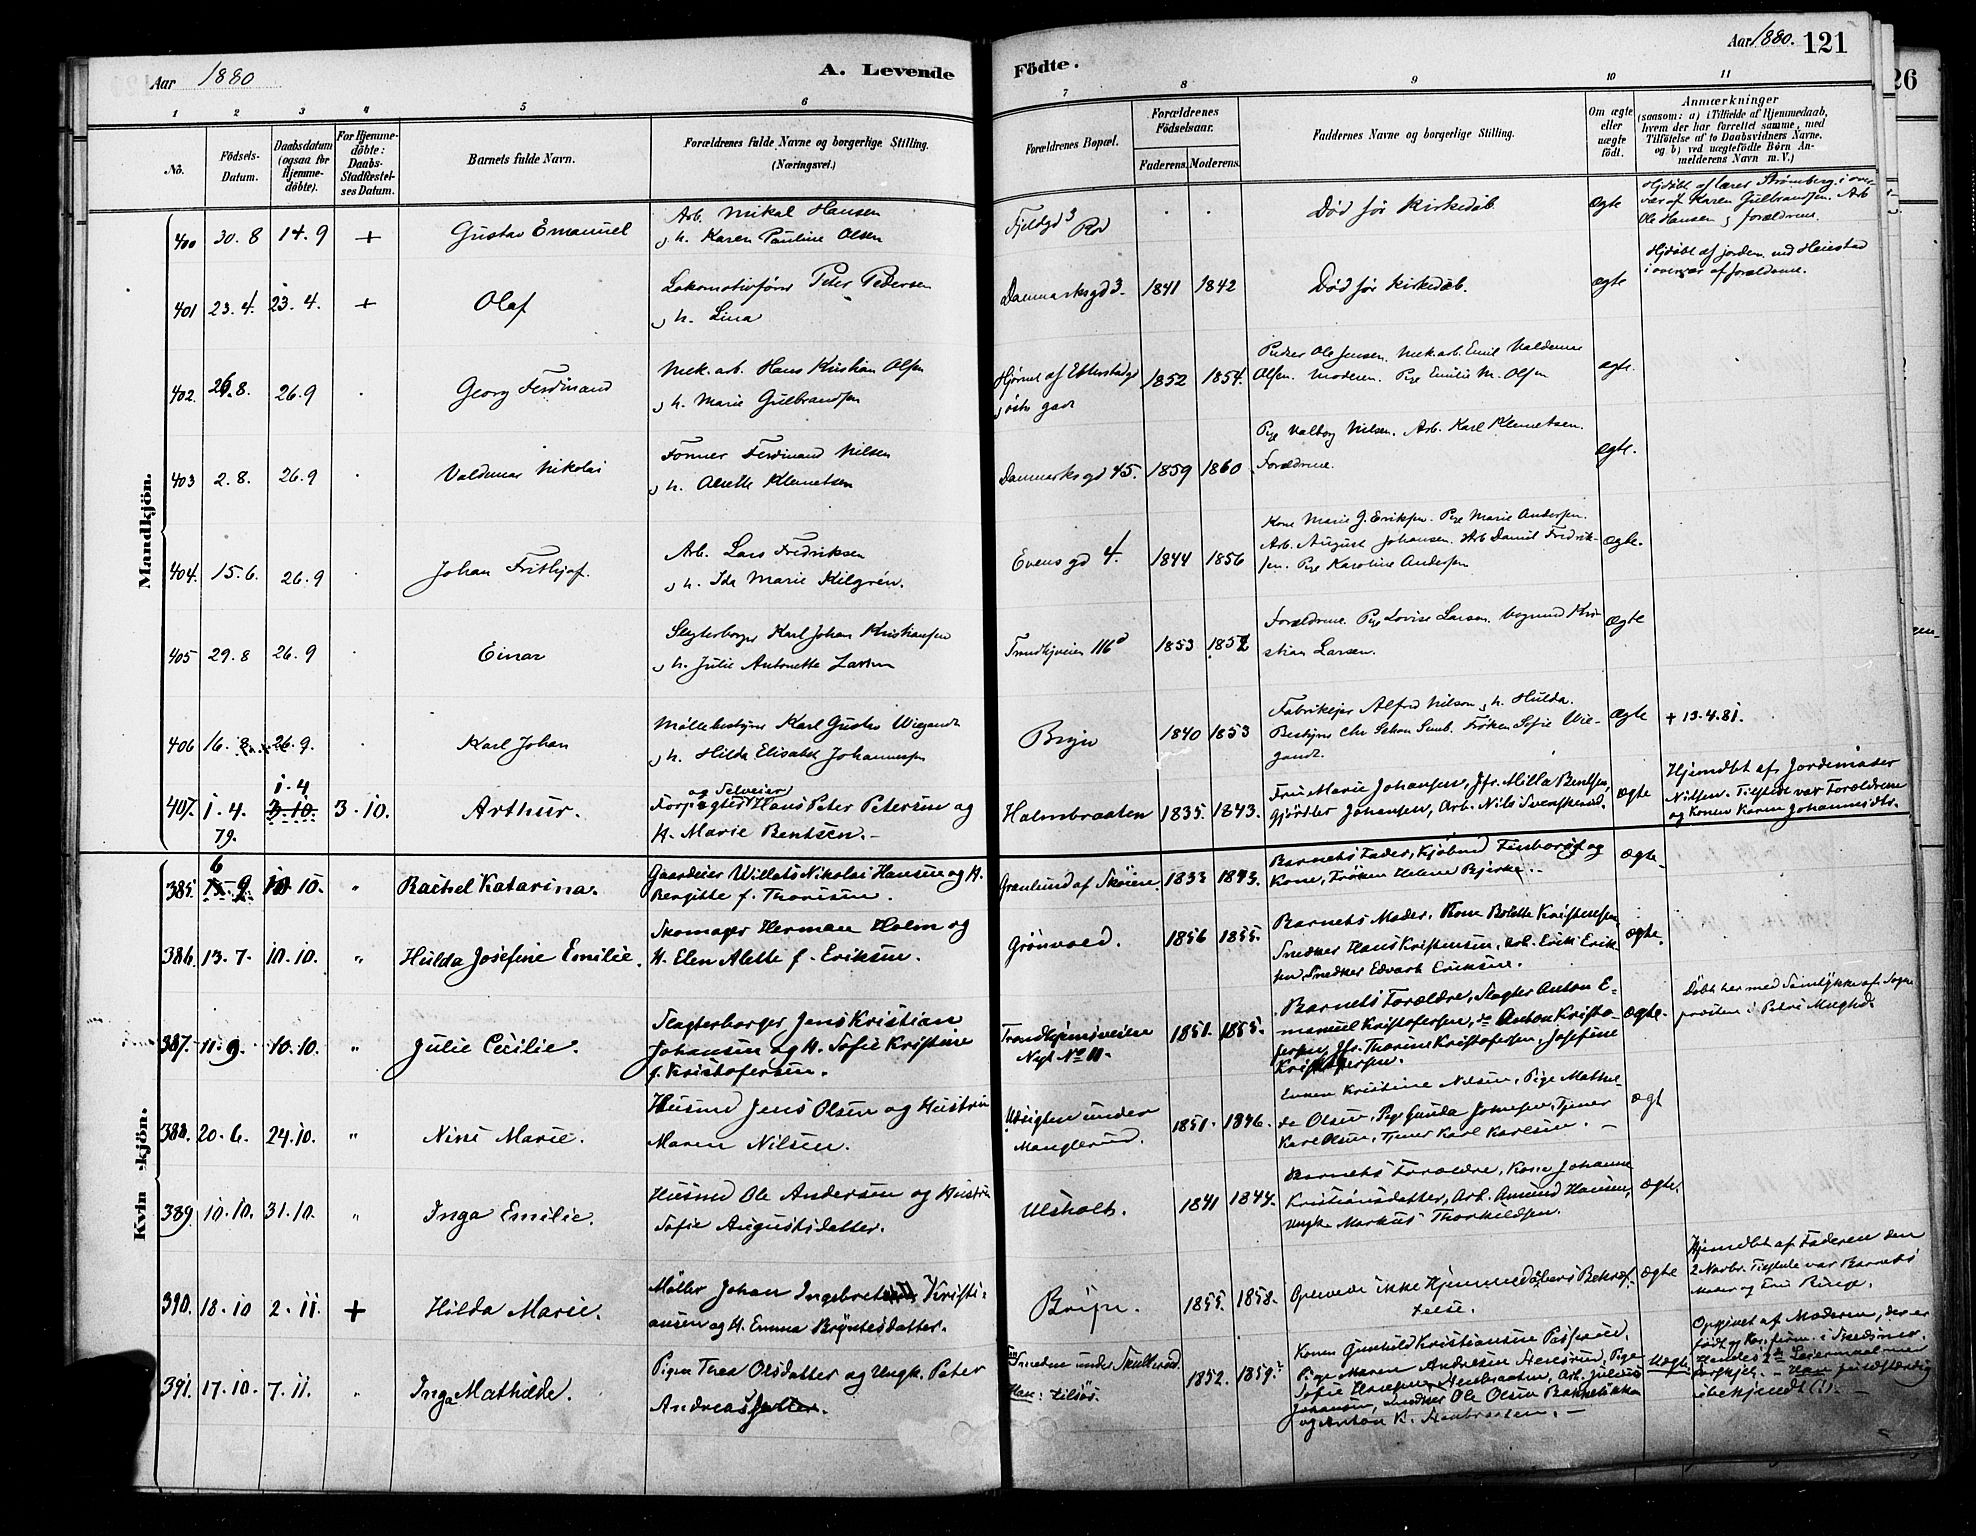 Aar 1880
A. Levende
Födte.
Aar 1880.
121
26
1 2 3 4 5 6 7 8 9 10 11
No.
Födsels-
Datum.
Daabsdatum
(ogsaa for
Hjemme-
döbte).
For Hjemme-
döbte:
Daabs-
Stadfæstel-
ses Datum.
Barnets fulde Navn.
Forældrenes fulde Navne og borgerlige Stilling.
(Næringsvei.)
Forældrenes Bopæl.
Forældrenes
Födselsaar.
Faderens.
Moderens.
Faddernes Navne og borgerlige Stilling.
Om ægte
eller
uægte
födt.
Anmærkninger
(saasom: a) i Tilfælde af Hjemmedaab,
hvem der har forrettet samme, med
Tilföielse af to Daabsvidners Navne,
og b) ved uægtefödte Börn An-
melderens Navn m. V.)
Mandkjön.
400 30.8 14.9 + Gustav Emanuel
Arb. Mikal Hansen
h. Karen Pauline Olsen
Død før Kirkedåb. ægte
Ole Hansen forældrene.
401 23.4. 23.4. + Olaf
Lokomotivfører Peter Pedersen
h. Lina
Danmarksgd 3. 1841 1842
Død før Kirkedåb. ægte
i overvær af forældrene.
402. 26.8. 26.9 Georg Ferdinand
Mek. arb. Hans Kristian Olsen
h. Marie Gulbrandsen
Hjørnet af
1852 1854.
Ole Jensen. Mek.arb. Emil Valdemar
Olsen. Moderen. Pige Emilie M. Olsen
ægte.
403 2.8. 26.9 Valdemar Nikolai
Former Ferdinand Nilsen
h. Alette Klemetsen
Danmarksgd 45. 1859 1860
Pige Valborg Nilsen. Arb. Karl Klemetsen.
Forældrene.
ægte.
404. 15.6. 26.9 Johan Frithjof.
Arb. Lars Fredriksen
h. Ida Marie Kilgrén.
Evensgd 4. 1844 1856
Kone Marie G. Eriksen. Pige Marie Andersen.
Arb. August Johansen. Arb Daniel Fredrik-
sen. Pige Karoline Andersen
ægte.
405 29.8 26.9 Einar
Slagterborger Karl Johan Kristiansen
h. Julie Antonette Larsen
Trondhjveien 116d 1853 1852
Forældrene. Pige Lovise Larsen. Vognmd Kri-
stian Larsen.
ægte
406 16.8. 26.9. Karl Johan
Møllebestyrer Karl Gustav Wiegandt
h. Hilda Elisabet Johannesen
Bryn 1840 1853
Fabrikejer Alfred Nilsen h. Hulda.
Frøken Sofie Wie-
gandt.
ægte + 13.4.81.
407. 1.4. 79. 1.4 3.10. 3.10. Arthur.
og Selveier
Forpagter Hans Peter Petersen og
H. Marie Bentsen.
Holmbraaten 1835. 1843.
Fru Marie Johansen, Jfr. Milla Bentsen,
Gjørtler Johansen, Arb. Nils
ægte
Hjemdbt af Jordemoder
Nilsen. Tilstede var Forældrene
og Konen Karen Johannesdtr.
Kvin kjön.
385. 6 15.9. 10.10. " Rachel Katarina.
Gaardeier Willats Nikolai Hansen og H.
Bergitte f. Thorisen.
Grønlund af Skøien. 1833 1843.
Barnets Fader, Kjøbmd Finborud og
Kone, Frøken Helene Bjerke.
ægte.
386. 13.7. 10.10. " Hulda Josefine Emilie.
Skomager Herman Holm og
H. Elen Alette f. Eriksen.
Grönvold. 1856 1855.
Barnets Moder, Kone Bolette Kristensen,
Snedker Hans Kristensen, Arb. Erik Erik-
sen, Snedker Edvart Eriksen.
ægte.
387. 11.9. 10.10. " Julie Cecilie.
Slagterborger Jens Kristian
Johansen og H. Sofie Kristine
f. Kristofersen.
Trondhjemsveien
No 11. 1851. 1855.
Barnets Forældre, Slagter Anton E-
manuel Kristofersen, do Anton Kristo-
fersen, Jfr. Thorine Kristofersen, Josefine
Kristofersen.
ægte.
Døbt her med Samtykke af Sogne-
præsten i Petri Mnghd.
388. 20.6. 24.10. " Nini Marie.
Husmd Jens Olsen og Hustru
Maren Nilsen.
Udsigten under
Manglerud. 1851. 1846.
Enken Kristine Nilsen, Pige Mathil-
de Olsen, Pige Gunda Johnsen, Tjener
Karl Olsen, Tjener Karl Karlsen.
ægt
389. 10.10. 31.10. " Inga Emilie.
Husmd Ole Andersen og Hustru
Sofie Augustsdatter.
Ulsholt. 1841 1844.
Barnets Forældre, Kone Johanne
Kristiansdatter, Arb. Amund Hansen,
Ungk. Markus Thorkildsen.
ægte.
390. 18.10 2.11. + Hilda Marie.
Møller Johan Ingebret Kristi-
ansen og H. Emma Bryntesdatter.
Bryn. 1855. 1858.
Oplevede ikke Hjemmedåbens Bekræf-
telse.
ægte
Hjemdbt af Faderen den
2 Novbr. Tilstede var Barnets
Moder og
391. 17.10. 7.11. " Inga Mathilde.
Pigen Thea Olsdatter og Ungk. Peter
Andreas
Smeden under Skullerud.
Han: 1852. 1859.
Konen Gunhild Kristiansen
Pige Maren Andresen Stensrud, Pige
Sofie Hansen Stenbraaten, Arb. Julius
Johansen, Snedker Ole Olsen
og Anton K. Stenbraaten.
Uægte
Opgivet af Moderen, der er
født og konfirm. i Skedsmo.
Hendes 2det Leiermaal